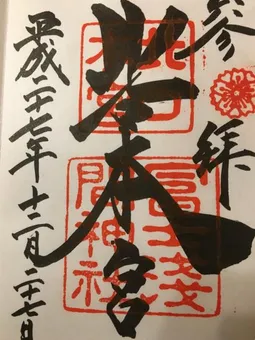 参拝
北口本宮
平成二十七年十二月二十七日
北口
本宮
冨士浅
間神社